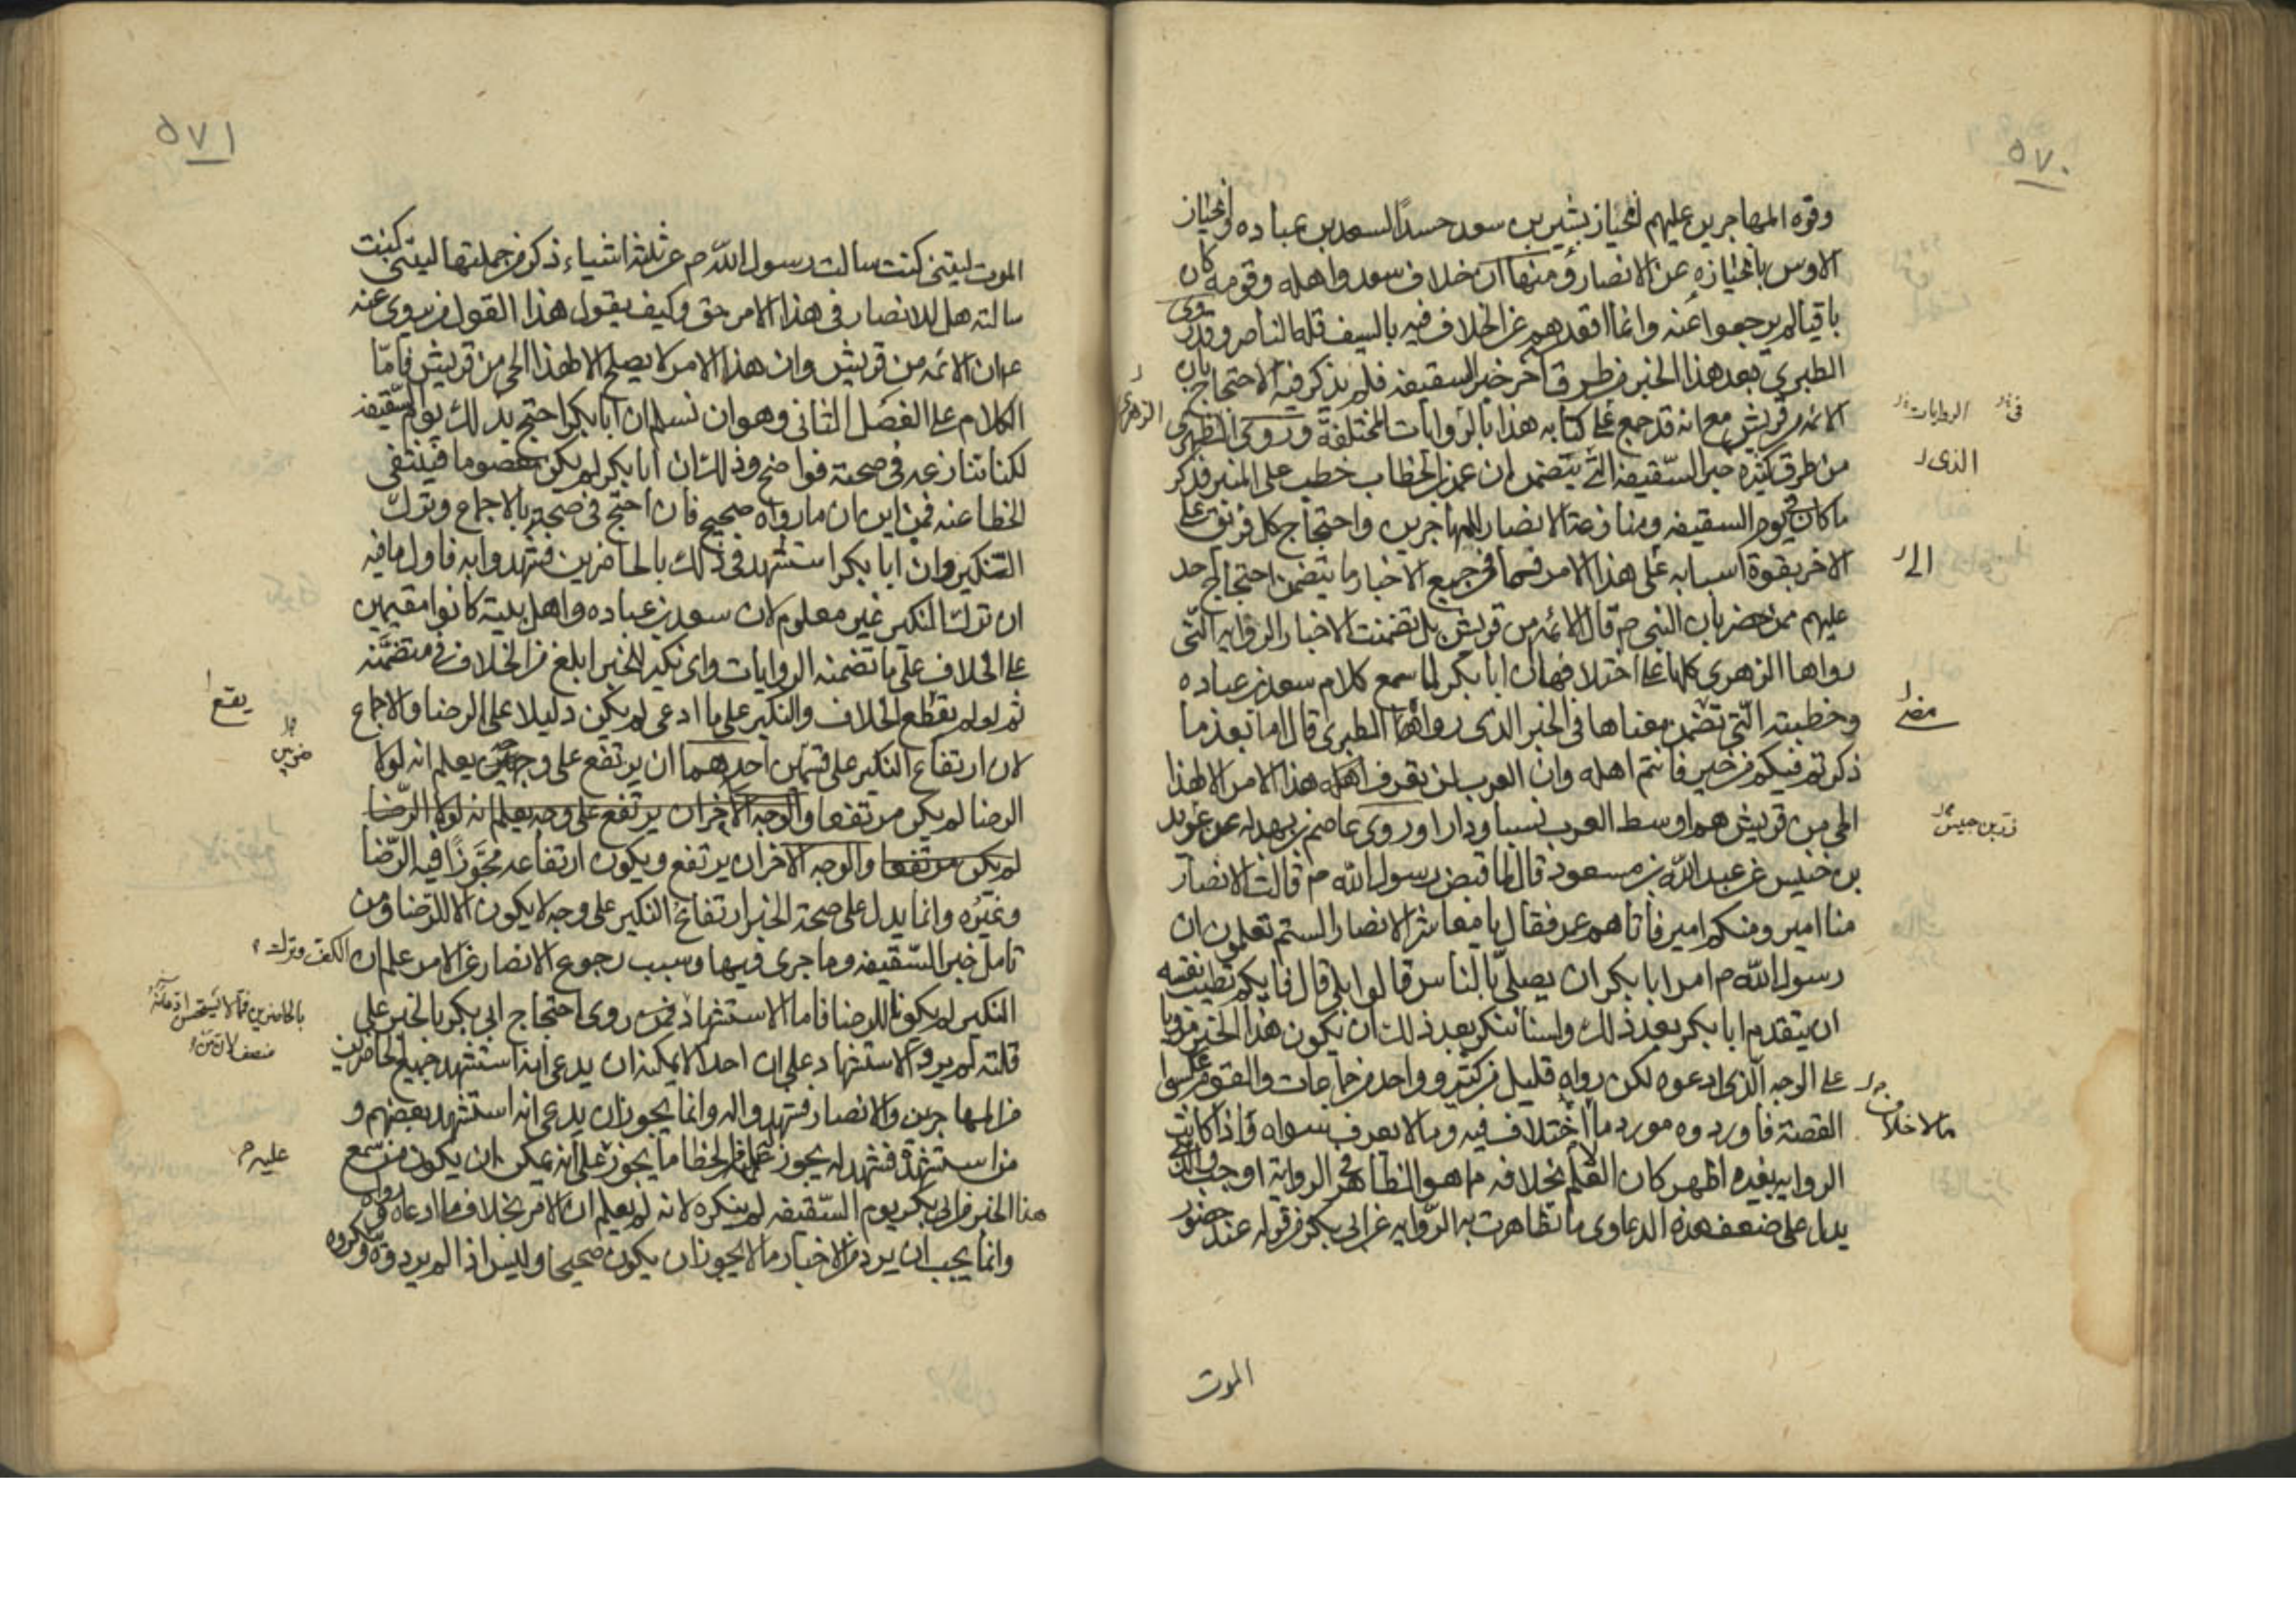 ٥٧٠
وقوه المهاجرين عليهم لانحياز بشير بن سعد حسدًا لسعد بن عباده وانحياز
الاوس بانحيازه عن الانصار ومنها ان خلاف سعد واهله وقومه كان
باقيا لم يرجعوا عنه وانما اقعدهم عن الخلاف فيه بالسيف قلة الناصر وقد روى
الطبري بعد هذا الخبر من طرق اخر خبر السقيفه فلم يذكر فيه الاحتجاج بان
الائمه من قريش مع انه قد جمع في كتابه هذا بالروايات المختلفة وروى الطبرى
الزهرى
فى
الروايات
من طرق كثيره خبر السقيفه التى يتضمن ان عمر بن الخطاب خطب على المنبر فذكر
الذى
ما كان فى يوم السقيفه ومنازعة الانصار المهاجرين واحتجاج كل فريق على
الاخر بقوة اسبابه على هذا الامر فما فى جميع الاخبار ما يتضمن احتجاج احد
الى
عليهم ممن حضر بان النبى ص قال الائمه من قريش بل تضمنت الاخبار الروايه التى
رواها الزهرى كلها على اختلافها ان ابا بكر لما سمع كلام سعد بن عباده
وخطبته التى تضمن معناها فى الخبر الذى رواه الطبرى قال اما بعد فما
مضى
ذكرتم فيكم من خير فانتم اهله وان العرب لن تعرف اهله هذا الامر الا لهذا
الحى من قريش هم اوسط العرب نسبا ودارا وروى عاصم بن بهدله عن
زر بن حبيش
بن خنيس عن عبد الله بن مسعود قال لما قبض رسول الله ص قالت الانصار
منا امير ومنكم امير فاتاهم عمر فقال يا معاشر الانصار الستم تعلمون ان
رسول الله ص امر ابا بكر ان يصلى بالناس قالوا بلى قال فايكم تطيب نفسه
ان يتقدم ابا بكر بعد ذلك ولسنا ننكر بعد ذلك ان يكون هذا الخبر مرويا
على الوجه الذى ادعوه لكن رواه قليل من كثير وواحد من جماعات والقوم عكسوا
القصة فاوردوه مورد ما اختلاف فيه وما لا يعرف سواه واذا كانت
ما لا خلاف
الروايه بغيره اظهر كان العلم بخلافه مما هو الظاهر فى الرواية اوجب والذى
يدل على ضعف هذه الدعاوى ما تظاهرت به الروايه عن ابى بكر من قوله عند حضور
الموت
٥٧١
الموت ليتنى كنت سالت رسول الله ص عن ثلثة اشياء ذكر من جملتها ليتنى كنت
سالته هل للانصار فى هذا الامر حق وكيف يقول هذا القول من يروى عنه
ص ان الائمه من قريش وان هذا الامر لا يصلح الا لهذا الحى من قريش فامّا
الكلام على الفصل الثانى وهو ان نسلم ان ابا بكر احتج بذلك يوم السقيفه
لكنا ننازعه فى صحته فواضح وذلك ان ابا بكر لم يكن معصوما فينتفى
الخطا عنه فمن اين ان ما رواه صحيح فان احتج فى صحته بالاجماع وترك
النكير وان ابا بكر استشهد فى ذلك بالحاضرين فشهدوا به فاول ما فيه
ان ترك النكير غير معلوم لان سعد بن عباده واهل بيته كانوا مقيمين
على الخلاف على ما تضمنه الروايات واى نكير للخبر ابلغ من الخلاف فى متضمّنه
ثم لو لم يقطع الخلاف والنكير على ما ادعى لم يكن دليلا على الرضا والاجماع
يقع
لان ارتفاع النكير على قسمين احدهما ان يرتفع على وجه يعلم انه لولا
ضربين
الرضا لم يكن مرتفعا والوجه الاخر ان يرتفع على وجه يعلم انه لولا الرّضا
لم يكن مرتفعا والوجه الاخر ان يرتفع ويكون ارتفاعه مجَوزًا فيه الرّضا
وغيره وانما يدل على صحة الخبر ارتفاع النكير على وجه لا يكون الا للرّضا ومن
تامل خبر السّقيفه وما جرى فيها وسبب رجوع الانصار عن الامر علم ان الكف وترك
النكير لم يكونا للرضا فاما الاستشهاد فمن روى احتجاج ابى بكر بالخبر على
قلته لم يرو الاستشهاد على ان احدا لا يمكنه ان يدعى انه استشهد جميع الحاضرين
من المهاجرين والانصار فشهدوا له وانما يجوز ان يدعى انه استشهد بعضهم و
من استشهده فشهد له يجوز عليه من الخطا ما يجوز على انه يمكن ان يكون من سمع
عليه م
هذا الخبر من ابى بكر يوم السّقيفه لم ينكره لانه لم يعلم ان الامر بخلاف ما ادعاه ورواه
وانما يجب ان يرد من الاخبار ما لا يجوز ان يكون صحيحا وليس اذا لم يردوه وينكروه